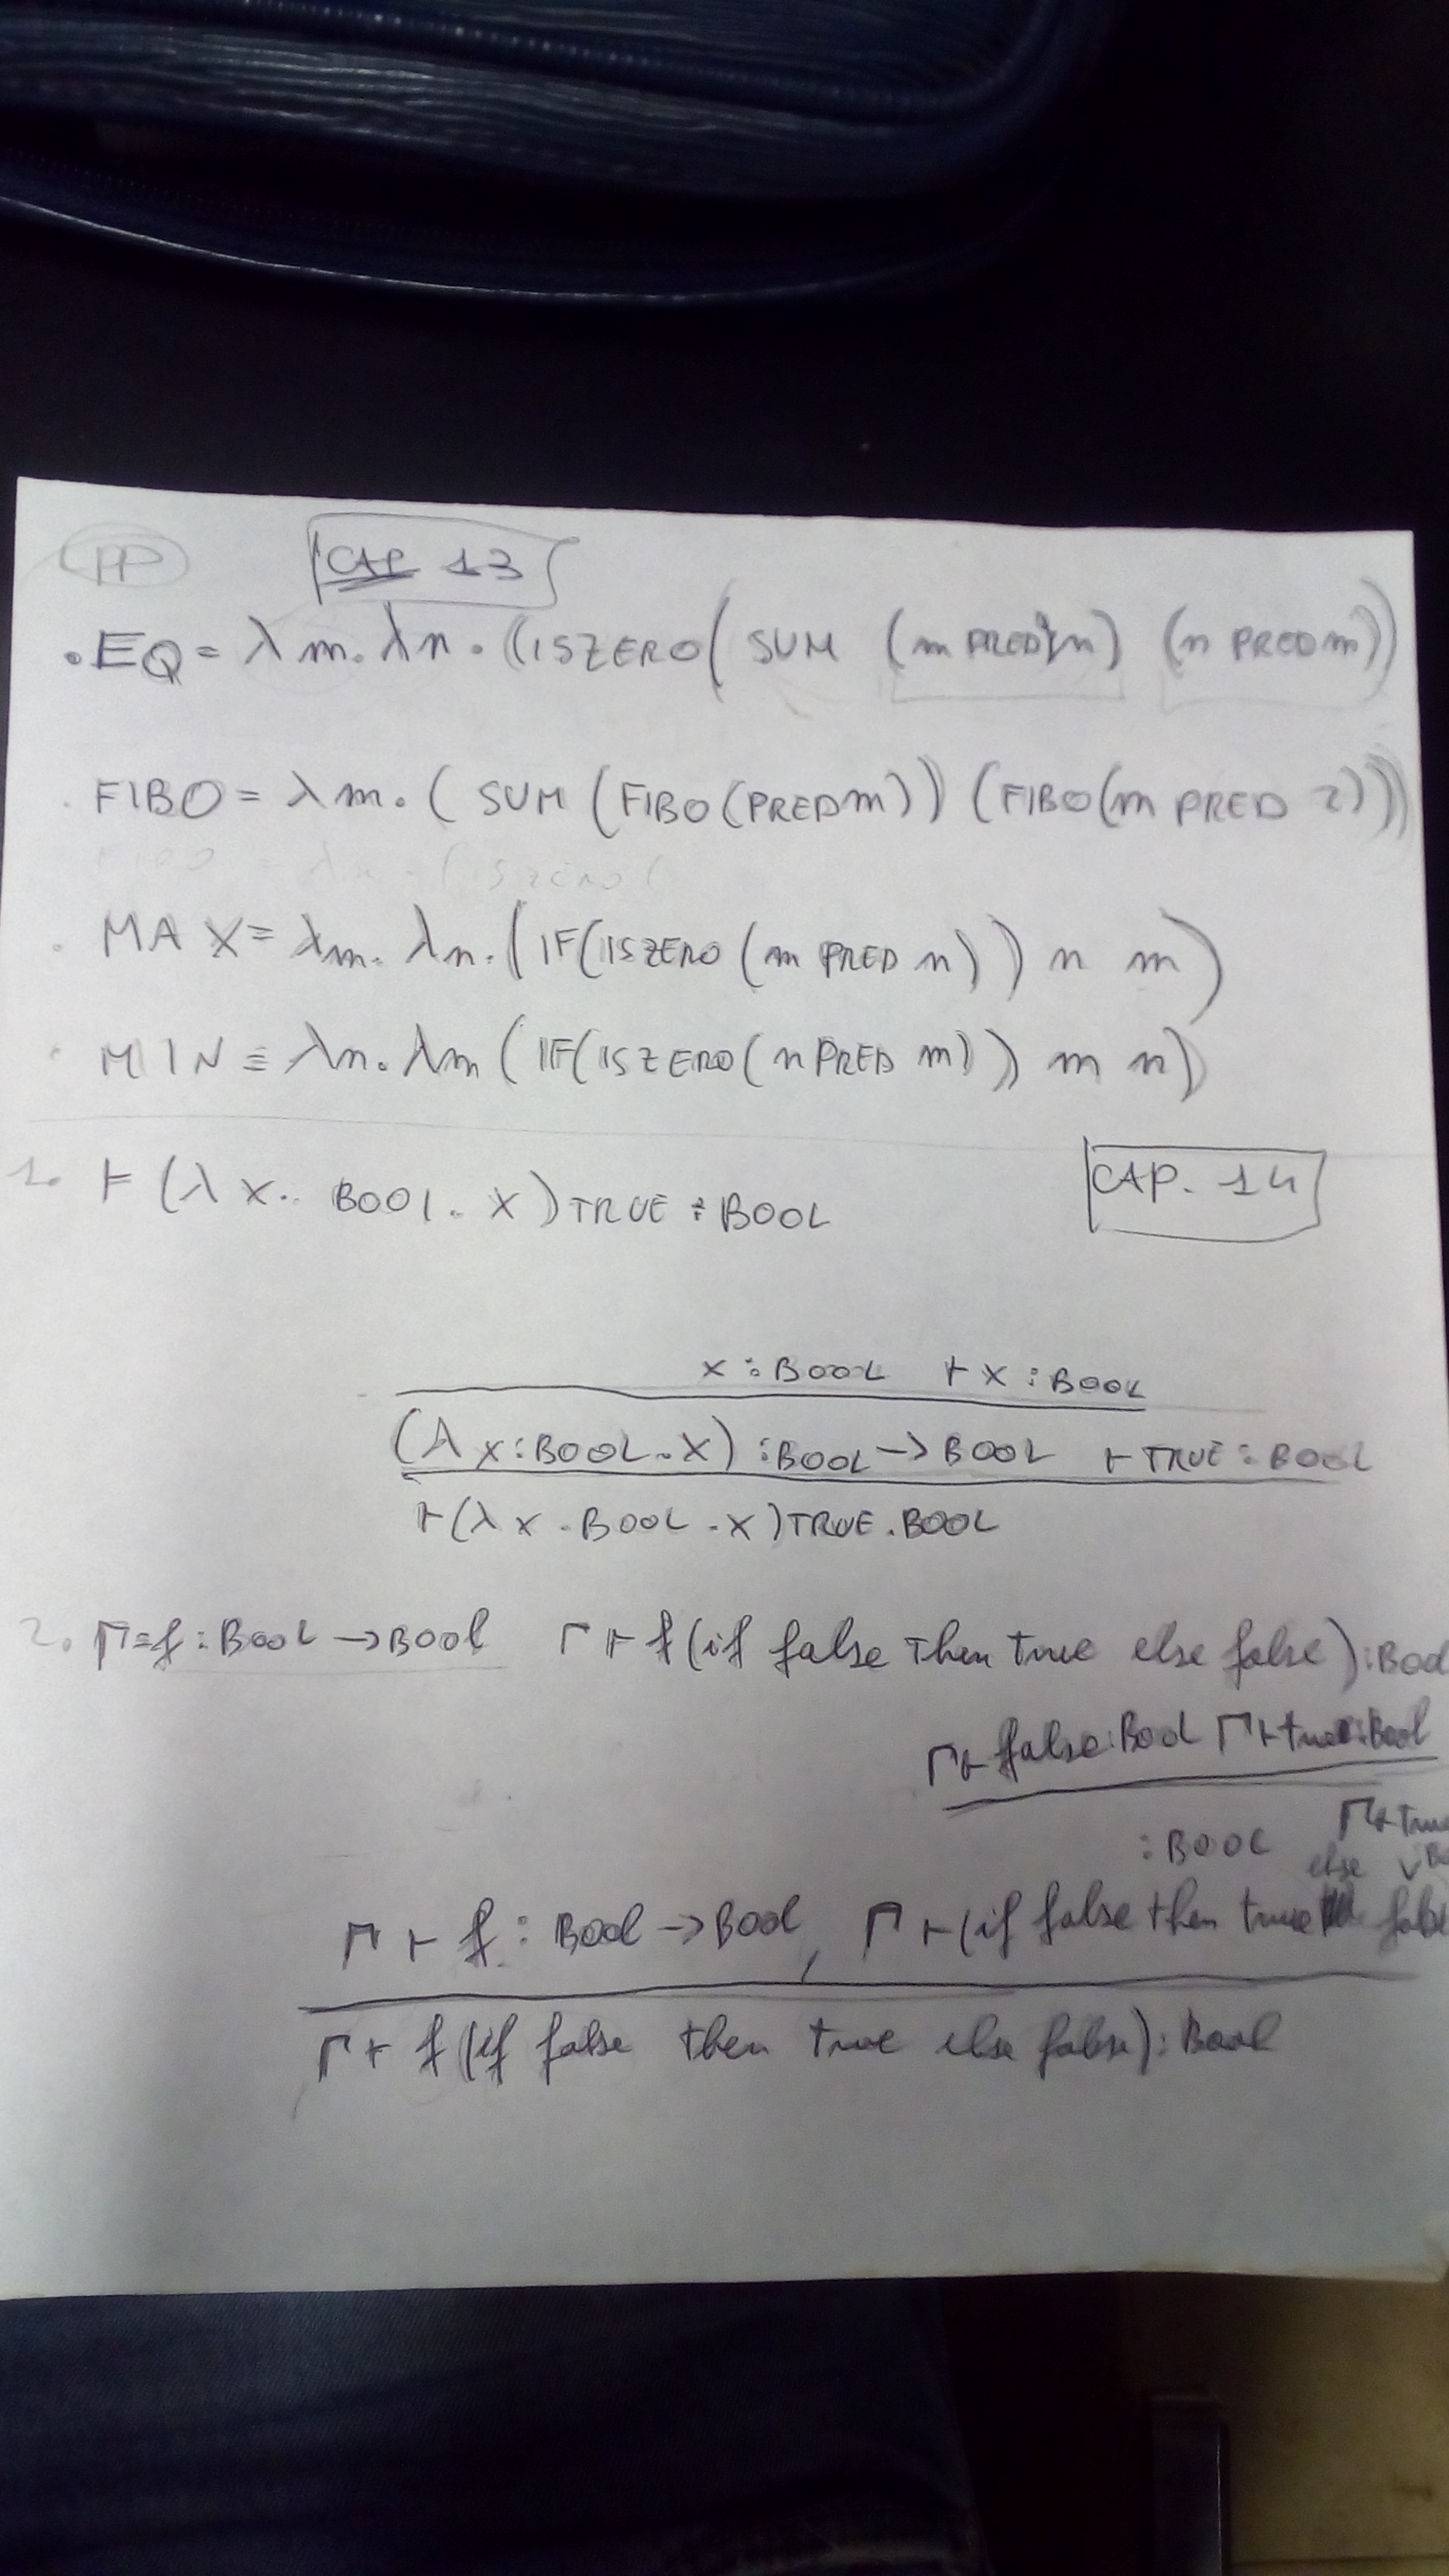 PP CAP 13
. EQ = λm. λn. ((ISZERO( SUM (m PRED n) (n PRED m))
. FIBO = λm. ( SUM (FIBO (PRED m)) (FIBO (m PRED 2)))
FIBO = λm. (ISZERO (
. MAX = λm. λn. (IF(ISZERO (m PRED n)) n m)
. MIN ≡ λn. λm (IF(ISZERO (n PRED m)) m n)
CAP. 14
1. ⊢ (λ x.. BOOL. x) TRUE : BOOL
x : BOOL ⊢ x : BOOL
(λ x : BOOL . x) : BOOL → BOOL ⊢ TRUE : BOOL
⊢ (λ x . BOOL . x) TRUE . BOOL
2. Γ = f : BOOL → BOOL Γ ⊢ f (if false then true else false) : Bool
Γ ⊢ false : Bool Γ ⊢ true : Bool
: BOOL Γ ⊢ true
else
Γ ⊢ f : Bool → Bool , Γ ⊢ (if false then true false
Γ ⊢ f (if false then true else false) : Bool